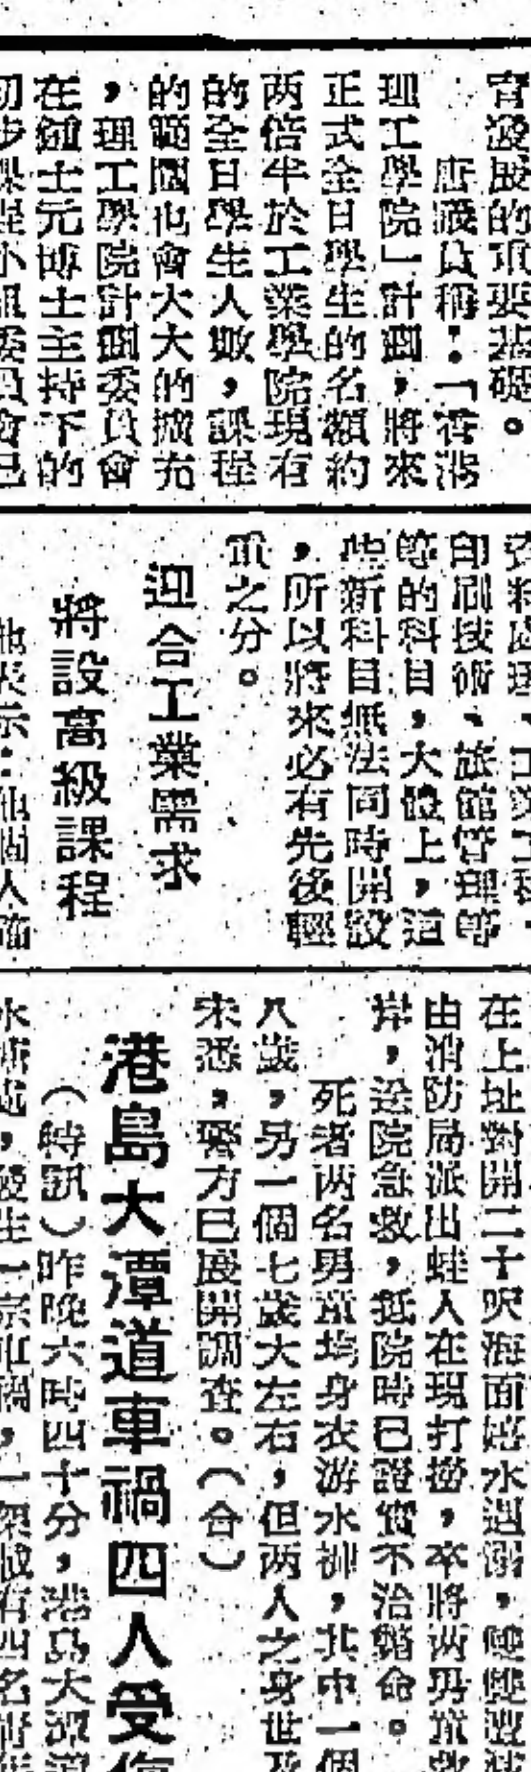 育發展的重要基礎。
唐職員稱：「香港
理工學院」計劃，將來
正式全日學生的名額約
两倍半於工業學院現有
的全日學生人數，課程
的範圍也會大大的擴充
，理工學院計劃委員會
在鍾士元博士主持下的
初步課程小組委員會已
資料處理、工業工程、
印刷技術、旅館管理等
等的科目，大體上，這
些新科目無法同時開設
，所以將來必有先後輕
重之分。
迎合工業需求
將設高級課程
他表示：他個人確
在上址對開二十呎海面嬉水遇溺，
由消防局派出蛙人在現打撈，卒將两男童救
岸，送院急救，抵院時已證實不治斃命。
死者两名男童均身衣游水褲，其中一個
八歲，另一個七歲大左右，但两人之身世及
未悉，警方已展開調查。（合）
港島大潭道車禍四人受傷
（時訊）昨晚六時四十分，港島大潭道
水塘處，發生一宗車禍，一架載有四名青年